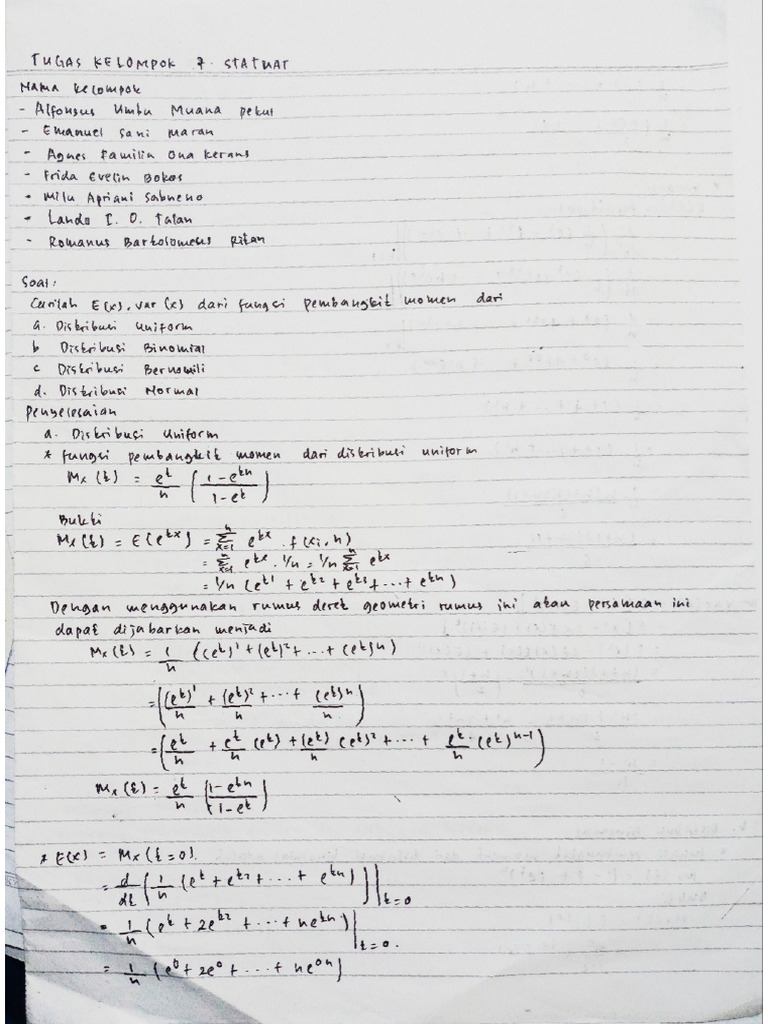 TUGAS KELOMPOK 7. STATMAT
Nama Kelompok
- Alfonsus Umbu Muana Pekul
- Emanuel Sani Maran
- Agnes Familia Ona Kerans
- Frida Evelin Bokos
- Milu Apriani Sabneno
- Lando I. O. Talan
- Romanus Bartolomeus Ritan
Soal:
Carilah E(x), var (x) dari fungsi pembangkit momen dari
a. Distribusi Uniform
b Distribusi Binomial
c Distribusi Bernowili
d. Distribusi Normal
Penyelesaian
a. Distribusi Uniform
* fungsi pembangkit momen dari distribusi uniform
Mx(t) = e^t/n ((1-e^tn)/(1-e^t))
Bukti
Mx(t) = E(e^tx) = Σ_{x=1}^n e^tx . f(xi, n)
= Σ_{x=1}^n e^tx . 1/n = 1/n Σ_{x=1}^n e^tx
= 1/n (e^t1 + e^t2 + e^t3 + ... + e^tn)
Dengan menggunakan rumus deret geometri rumus ini atau persamaan ini
dapat dijabarkan menjadi
Mx(t) = 1/n ((e^t)^1 + (e^t)^2 + ... + (e^t)^n)
= ((e^t)^1/n + (e^t)^2/n + ... + (e^t)^n/n)
= (e^t/n + e^t/n (e^t) + (e^t)/n (e^t)^2 + ... + e^t/n . (e^t)^n-1)
Mx(t) = e^t/n ((1-e^tn)/(1-e^t))
* E(x) = Mx(t=0).
= d/dt (1/n (e^t + e^t2 + ... + e^tn))|t=0
= 1/n (e^t + 2e^t2 + ... + ne^tn)|t=0.
= 1/n (e^0 + 2e^0 + ... + ne^0n)